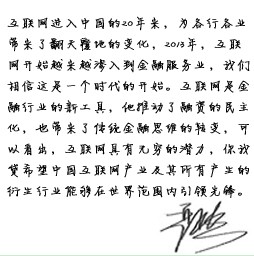 互联网进入中国的20年来，为各行各业
带来了翻天覆地的变化，2013年，互联
网开始越来越渗入到金融服务业，我们
相信这是一个时代的开始。互联网是金
融行业的新工具，他推动了融资的民主
化，也带来了传统金融思维的转变，可
以看出，互联网具有无穷的潜力，你我
贷希望中国互联网产业及其所有产生的
衍生行业能够在世界范围内引领先锋。